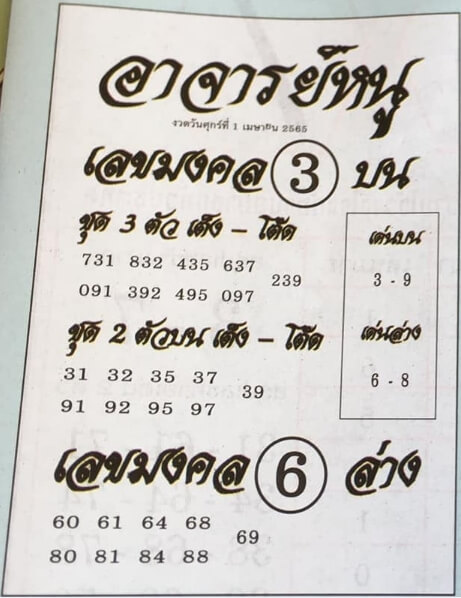 อาจารย์หนู
งวดวันศุกร์ที่ 1 เมษายน 2565
เลขมงคล 3 บน
ชุด 3 ตัว เต็ง - โต๊ด
731 832 435 637
239
091 392 495 097
เด่นบน
3 - 9
เด่นล่าง
6 - 8
ชุด 2 ตัวบน เต็ง - โต๊ด
31 32 35 37
39
91 92 95 97
เลขมงคล 6 ล่าง
60 61 64 68
69
80 81 84 88